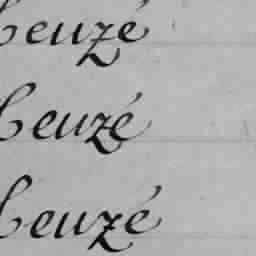 Ceuzé
Ceuzé
Ceuzé